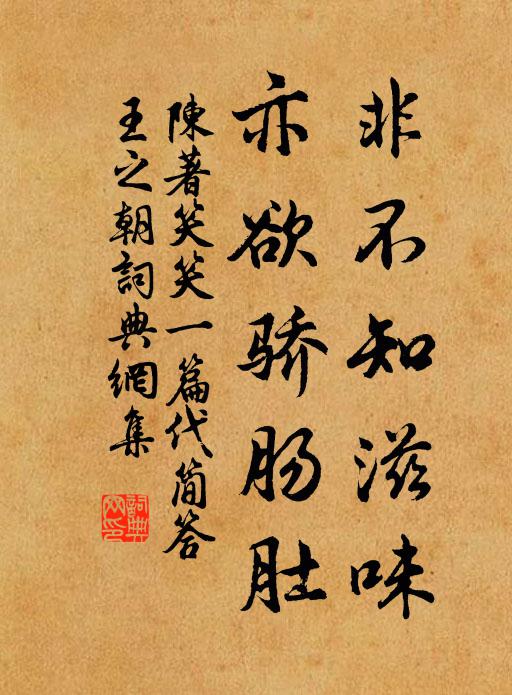 非不知滋味
亦欲骄肠肚
陳著笑笑一篇代简答
王之朝詞典網集
詞典网印